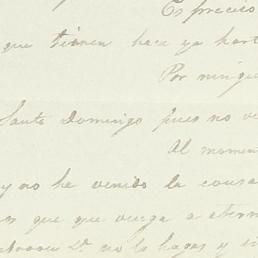 Es preciso
que tienen hace ya hart
Por ningu
Santo Domingo pues no ve
Al momen
y no he venido la causa
es que que venga a eterni
no lo hagas y